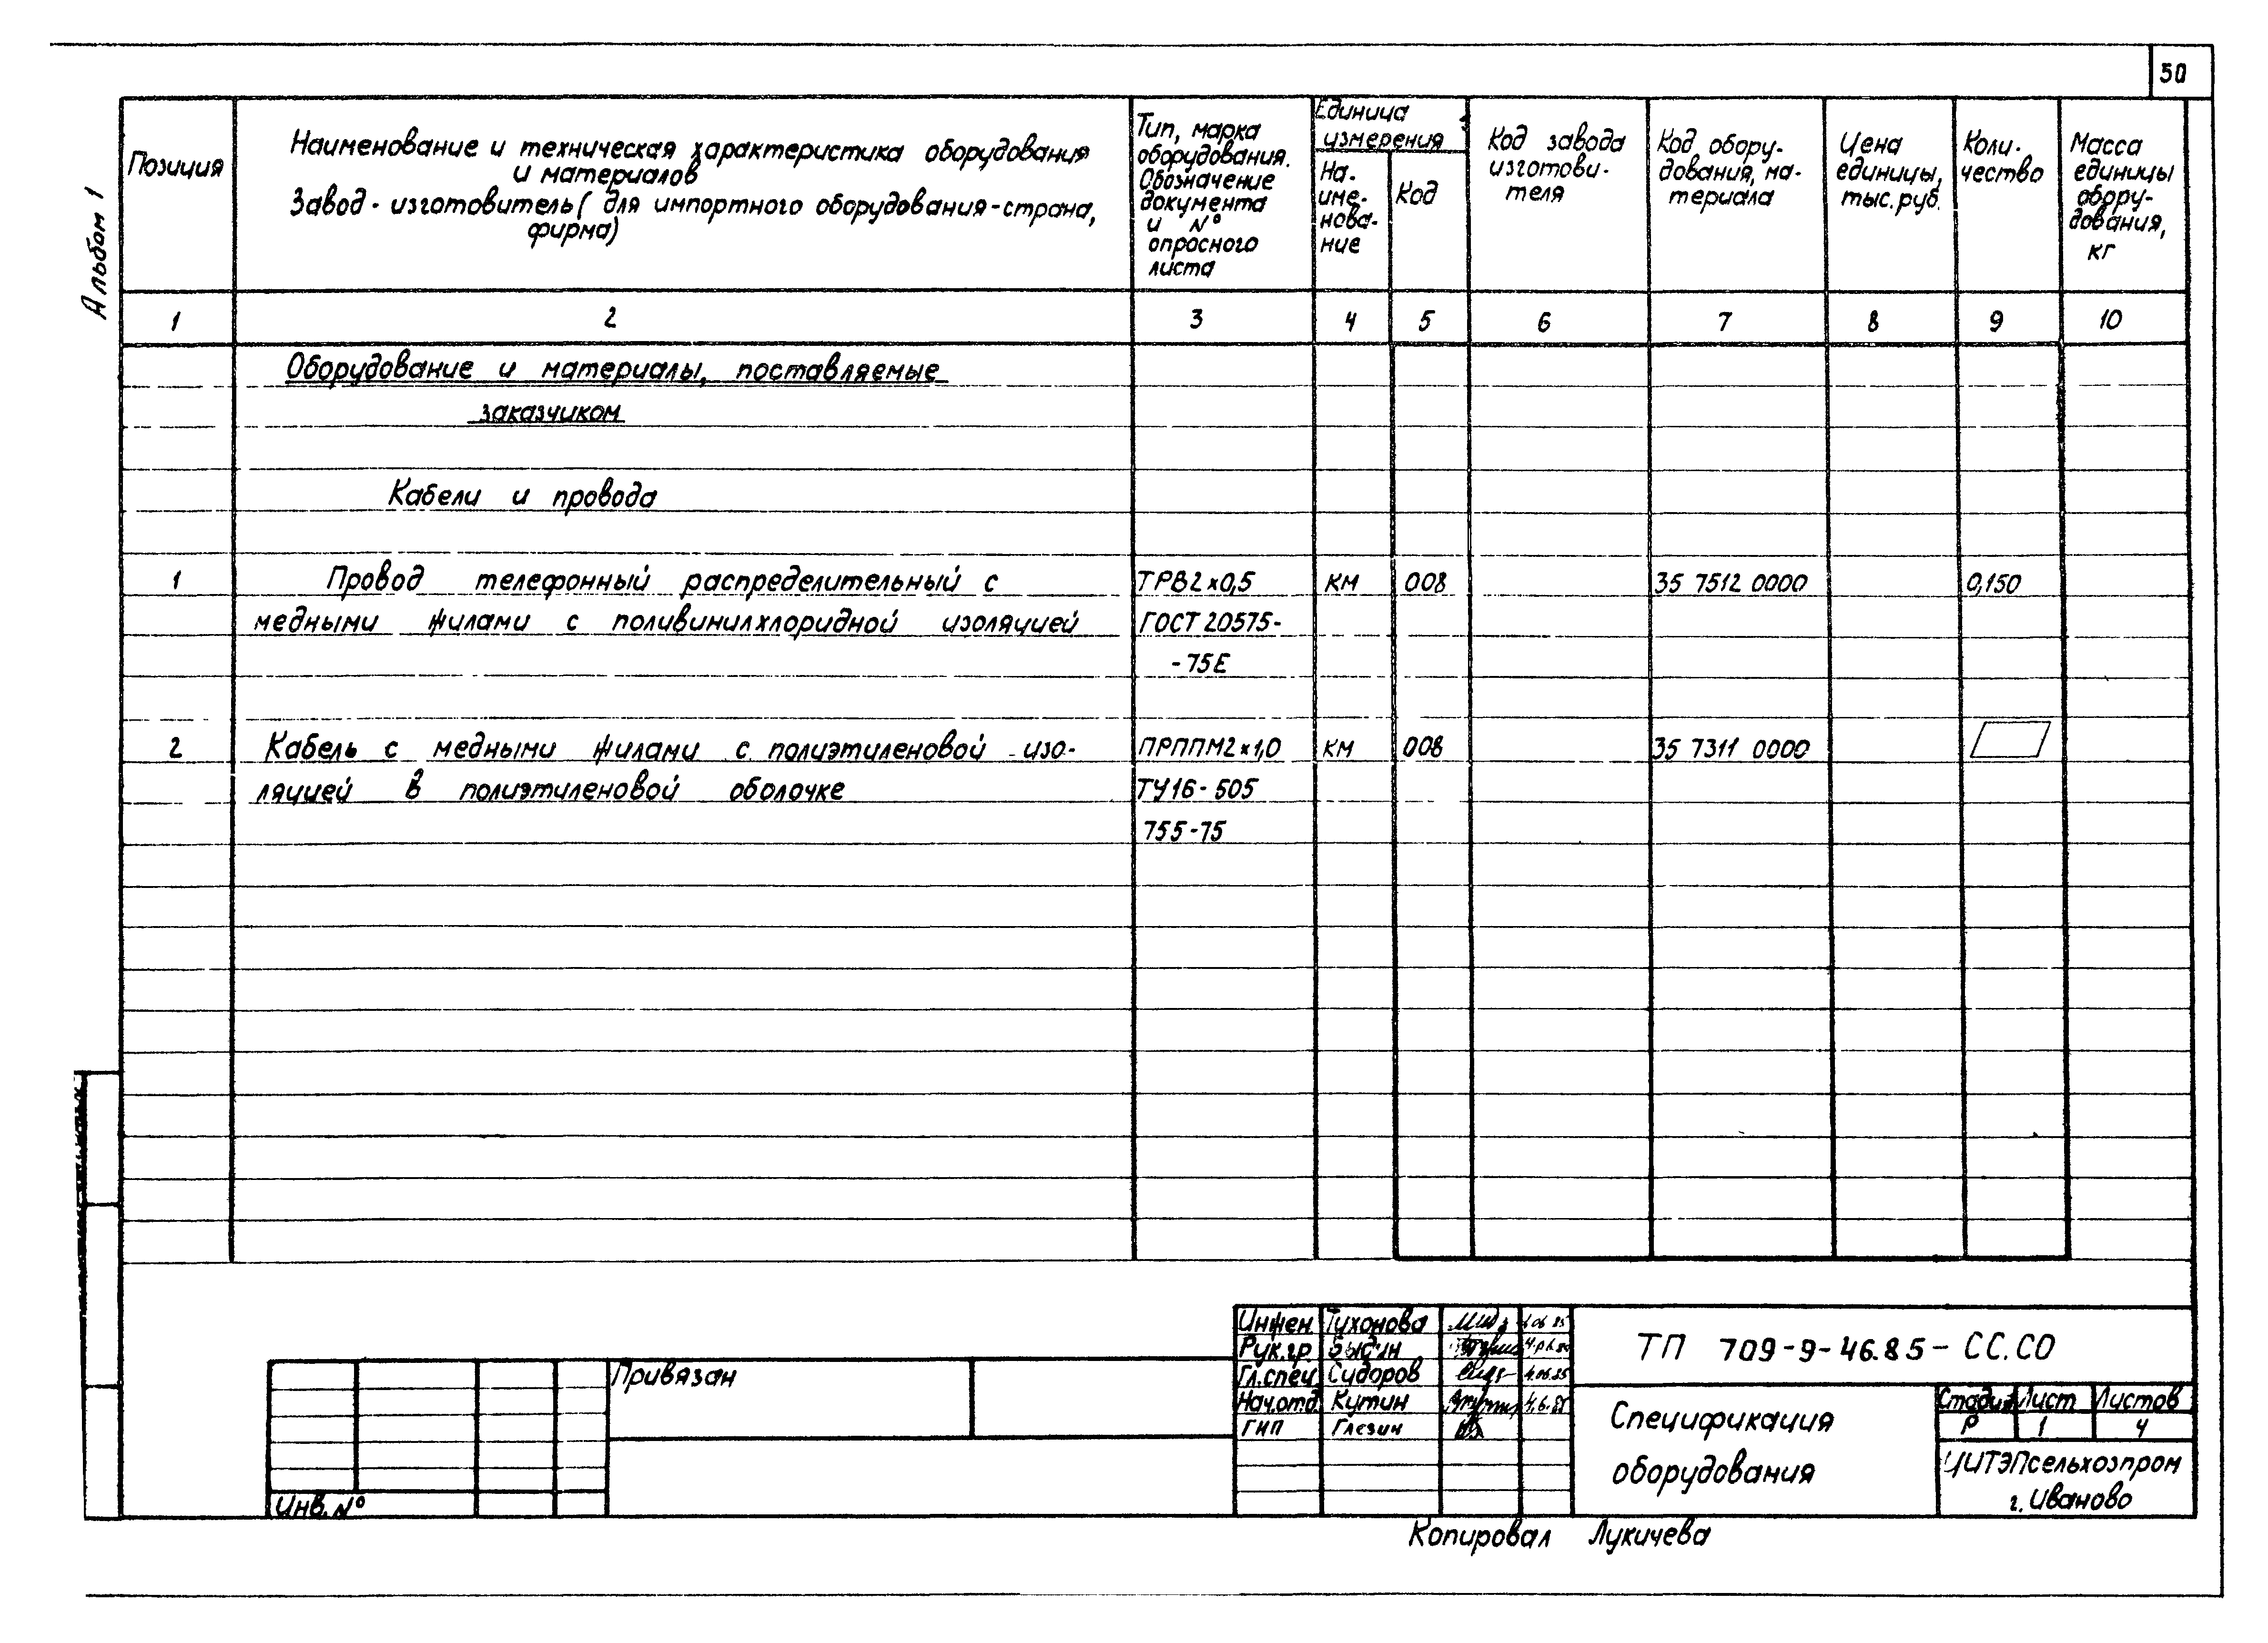 50
Альбом 1
Позиция
Наименование и техническая характеристика оборудования
и материалов
Завод-изготовитель (для импортного оборудования-страна,
фирма)
Тип, марка
оборудования.
Обозначение
документа
и №
опросного
листа
Единица
измерения
На-
име-
нова-
ние
Код
Код завода
изготови-
теля
Код обору-
дования, ма-
териала
Цена
единицы,
тыс. руб.
Коли-
чество
Масса
единицы
обору-
дования,
кг
1 2 3 4 5 6 7 8 9 10
Оборудование и материалы, поставляемые
заказчиком
Кабели и провода
1 Провод телефонный распределительный с ТРВ2х0,5 км 008 35 7512 0000 0,150
медными жилами с поливинилхлоридной изоляцией ГОСТ 20575-
-75Е
2 Кабель с медными жилами с полиэтиленовой изо- ПРППМ2х1,0 км 008 35 7311 0000
ляцией в полиэтиленовой оболочке ТУ16-505
755-75
Инжен. Тихонова
Рук.гр. Быдин
Гл.спец. Сидоров 4.06.85
Нач.отд. Кутин 4.6.85
ГИП Глезин
ТП 709-9-46.85-СС.СО
Спецификация
оборудования
Стадия Лист Листов
Р 1 4
ЦИТЭПсельхозпром
г. Иваново
Привязан
Инв. №
Копировал Лукичева